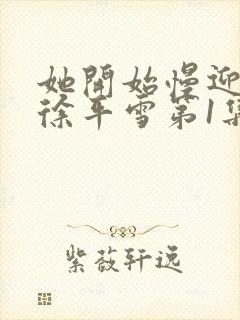 她開始慢迎
徐平雪第1集
紫薇轩逸